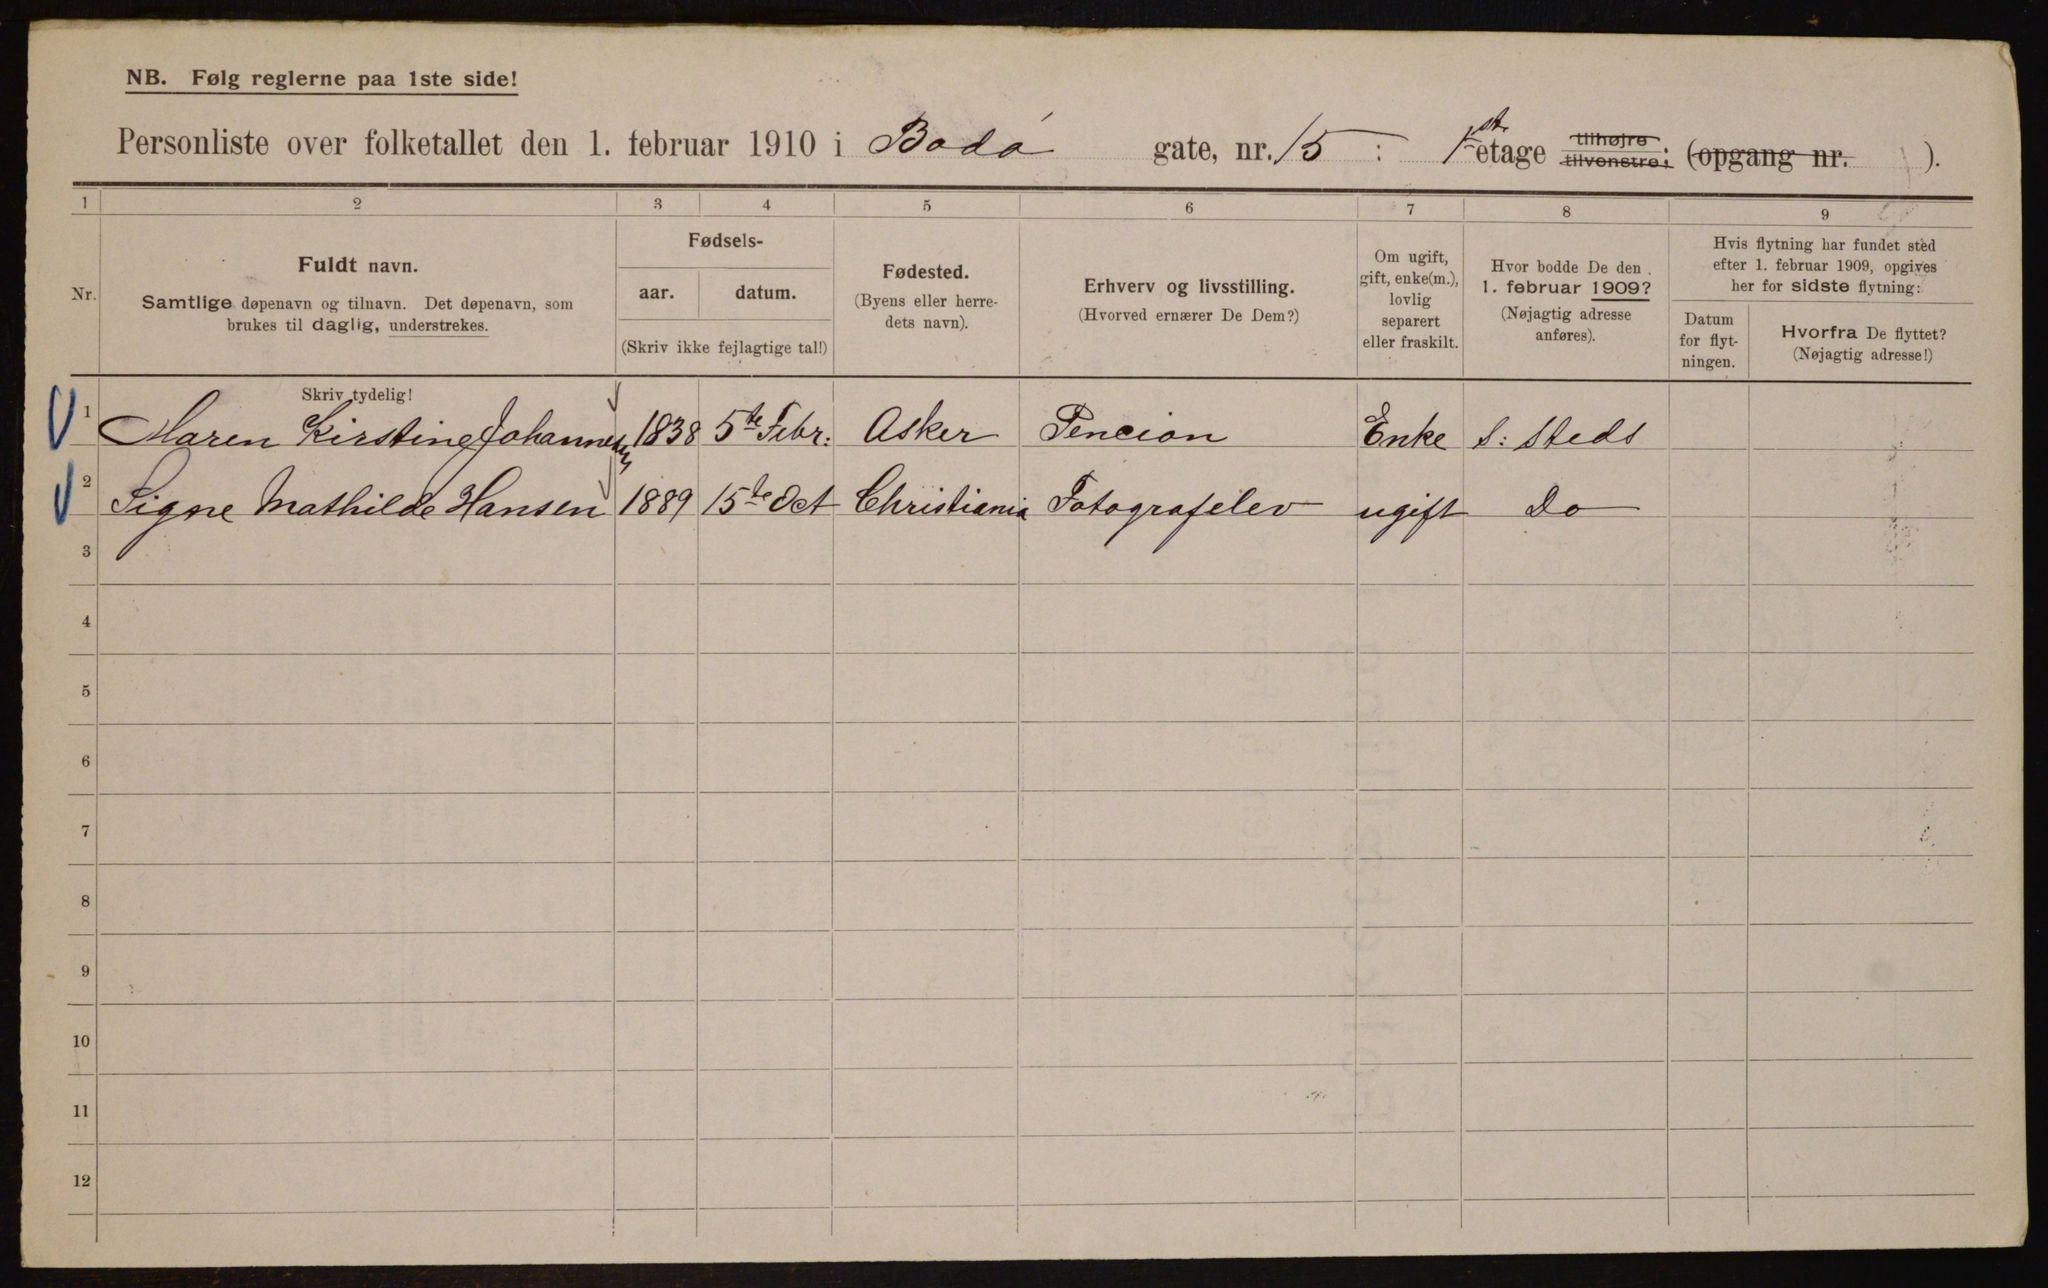 NB. Følg reglerne paa 1ste side!
Personliste over folketallet den 1. februar 1910 i Bodø gate, nr. 15 : 1ste etage tilhøjre. tilvenstre; (opgang nr. ).
1 2 3 4 5 6 7 8 9
Nr.
Fuldt navn.
Samtlige døpenavn og tilnavn. Det døpenavn, som
brukes til daglig, understrekes.
Fødsels-
aar. datum.
(Skriv ikke fejlagtige tal!)
Fødested.
(Byens eller herre-
dets navn).
Erhverv og livsstilling.
(Hvorved ernærer De Dem?)
Om ugift,
gift, enke(m.),
lovlig
separert
eller fraskilt.
Hvor bodde De den
1. februar 1909?
(Nøjagtig adresse
anføres).
Hvis flytning har fundet sted
efter 1. februar 1909, opgives
her for sidste flytning:
Datum
for flyt-
ningen.
Hvorfra De flyttet?
(Nøjagtig adresse!)
Skriv tydelig!
1 Maren Kirstine Johannesen 1838 5te Febr: Asker Pencion Enke s: steds
2 Signe Mathilde Hansen 1889 15te Oct Christiania Fotografelev ugift Do
3
4
5
6
7
8
9
10
11
12